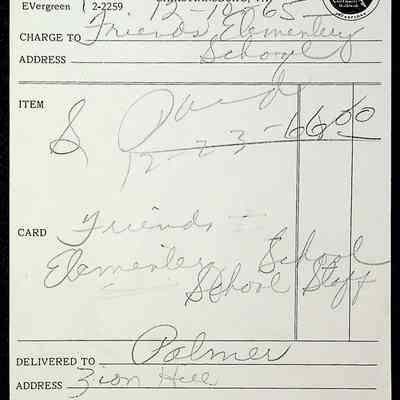 EVergreen 2-2259
12-10-65
CHARGE TO Friends Elementery
ADDRESS School
ITEM
Paid
12-23-66
6.00
CARD Friends
Elementery School
School Staff
DELIVERED TO Palmer
ADDRESS Zion Hill